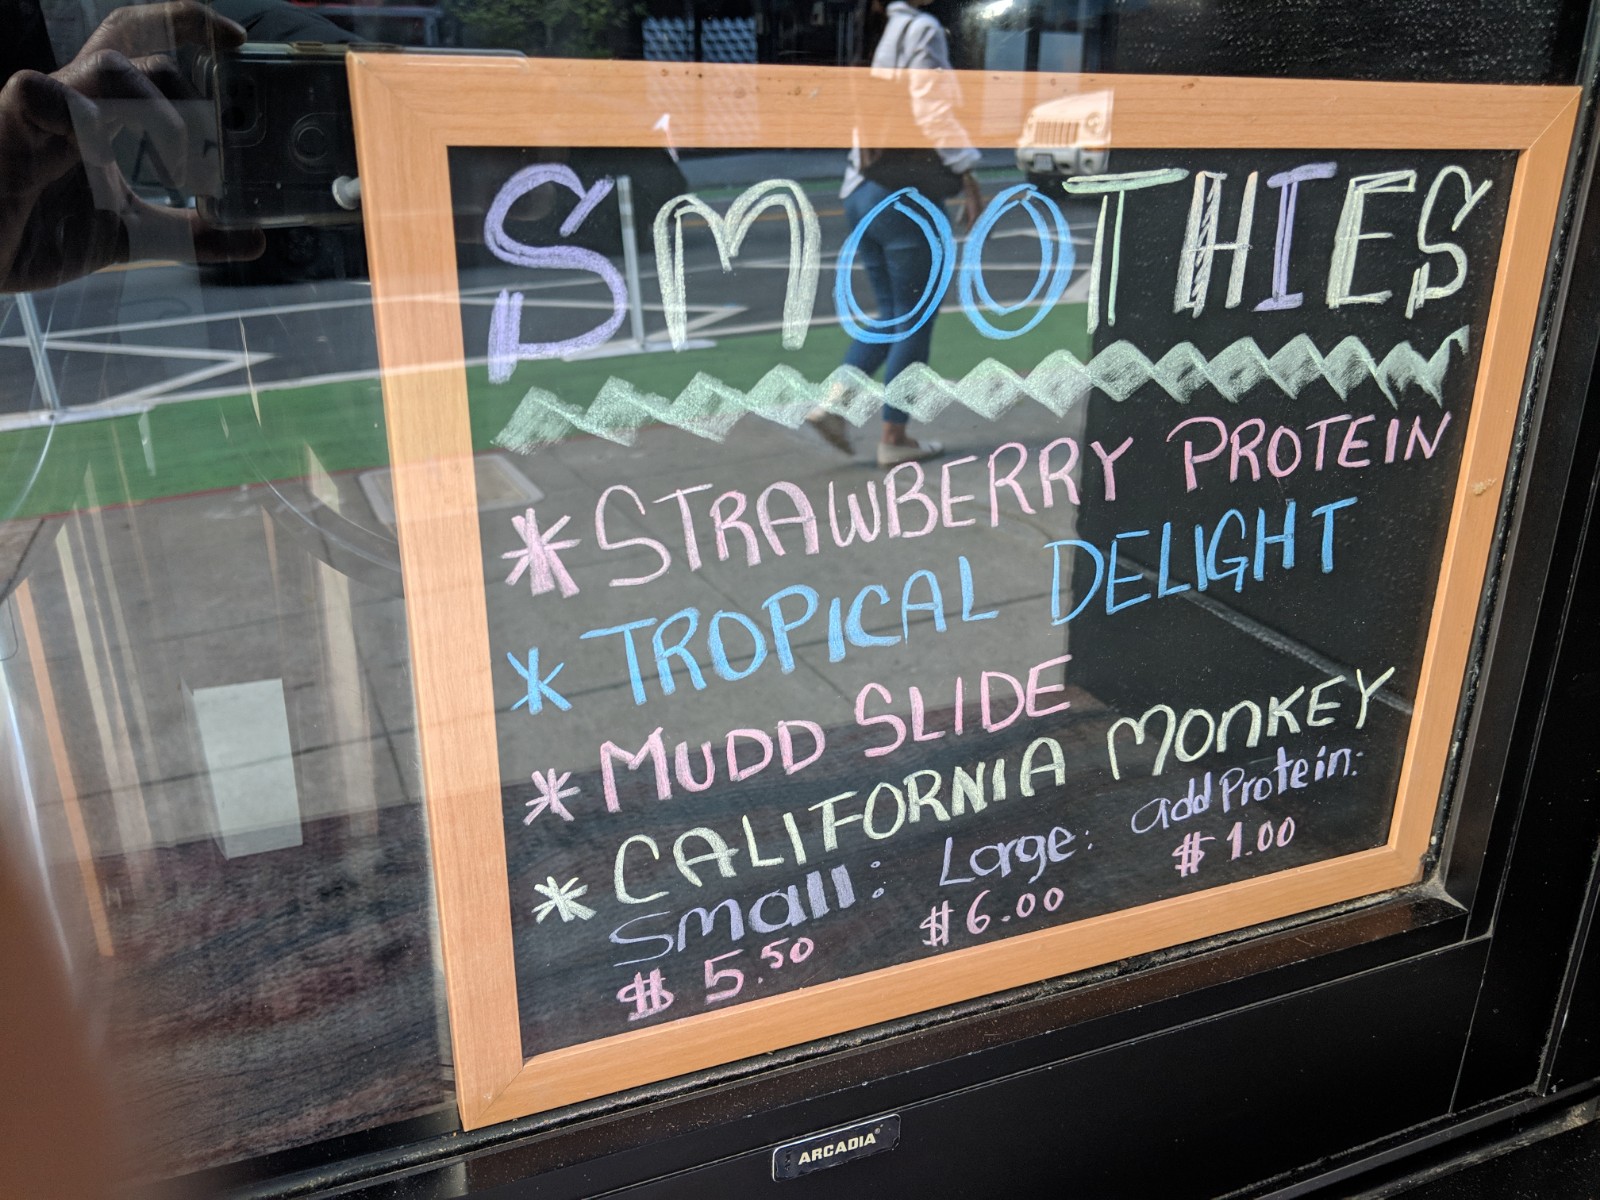 SMOOTHIES
* STRAWBERRY PROTEIN
* TROPICAL DELIGHT
* MUDD SLIDE
* CALIFORNIA MONKEY
Small: Large: add Protein:
$ 5.50 $ 6.00 $ 1.00
ARCADIA